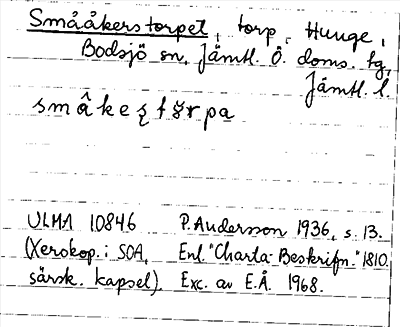 Smååkerstorpet, torp, Hunge,
Bodsjö sn, Jämtl. Ö. doms. tg,
Jämtl. l.
ULMA 10846 P. Andersson 1936, s. 13.
(Xerokop. i SOA, Enl. "Charta-Beskrifn." 1810.
särsk. kapsel). Exc. av E.Å. 1968.